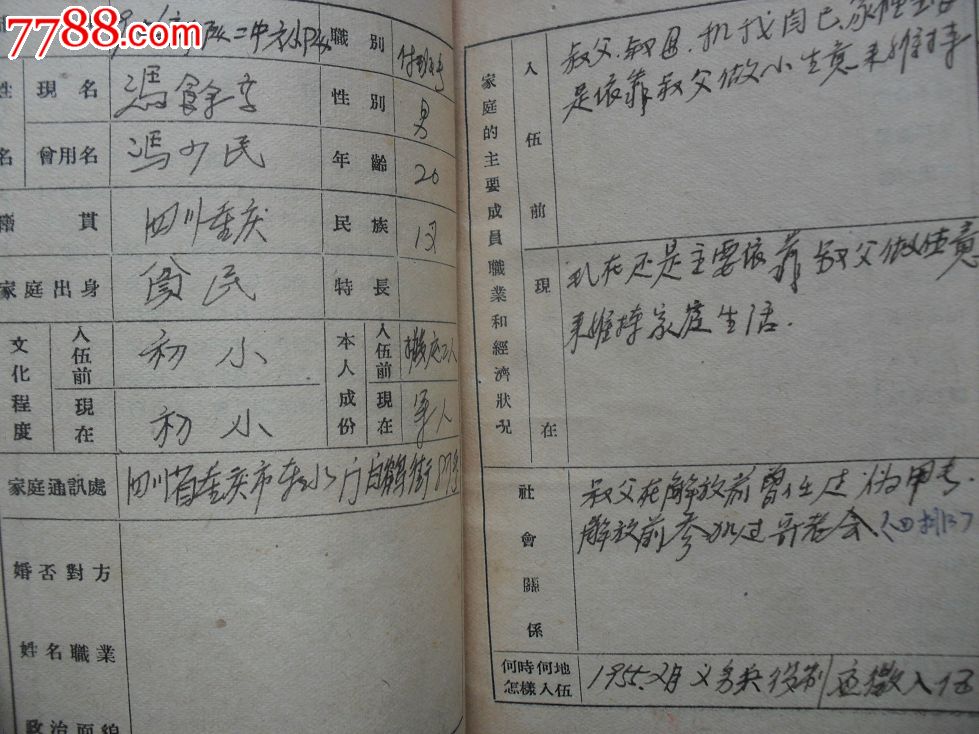 7788.com
職別
現名 馮餘李 性別 男
名 曾用名 馮少民 年齡 20
貫 四川重庆 民族 汉
家庭出身 贫民 特長
文化程度 入伍前 初小 本人成份 入伍前
現在 初小 現在 军人
家庭通訊處 四川省重庆市 水门白鹤街
婚否對方
姓名職業
政治面貌
家庭的主要成員職業和經濟狀况
入伍前 叔父、叔母、 我自己、家裡
是依靠叔父做小生意来维持
現在 现在还是主要依靠叔父做生意
来维持家庭生活.
社會關係 叔父在解放前曾任过伪甲长.
解放前参加过哥老会
何時何地
怎樣入伍 1955.2月 义务兵役制 应徵入伍